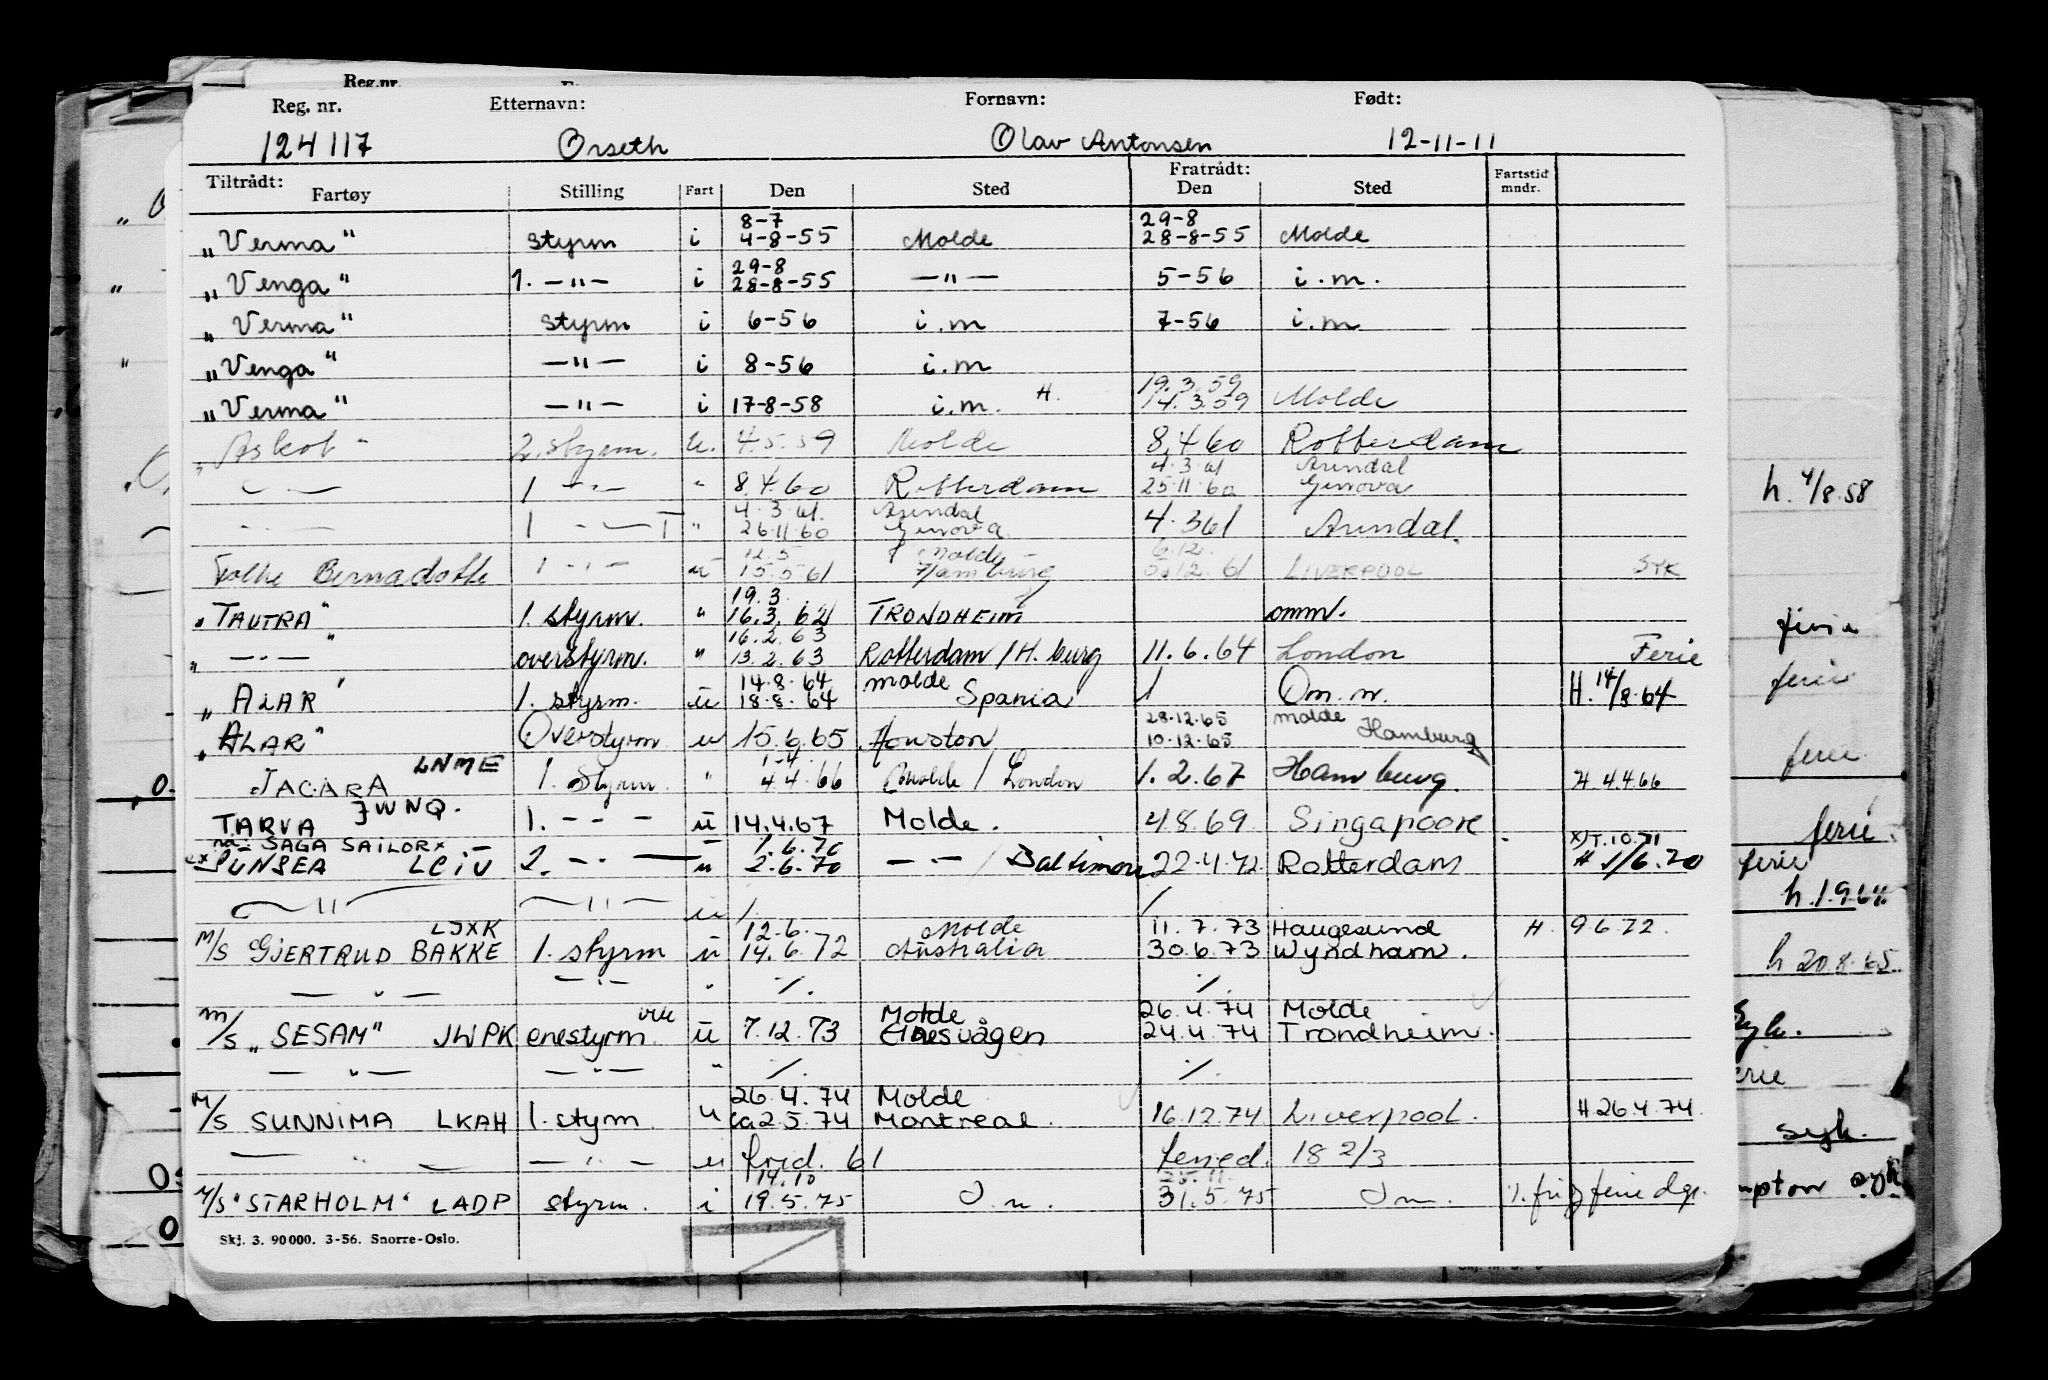 Reg. nr. Etternavn: Fornavn: Født:
124117 Orseth Olav Antonsen 12-11-11
Tiltrådt: Fratrådt:
Fartøy Stilling Fart Den Sted Den Sted Fartstid mndr.
8-7 29-8
„Verma" styrm i 4-8-55 Molde 28-8-55 Molde
29-8
„Venga" 1. —"— i 28-8-55 —"— 5-56 i.m.
„Verma" styrm i 6-56 i.m 7-56 i.m
„Venga" —"— i 8-56 i.m
19.3.59
„Verma" —"— i 17-8-58 i.m. H. 14.3.59 Molde
„Askot" 2. styrm. u. 4.5.59 Molde 8.4.60 Rotterdam
4.3.61 Arendal
—"— 1 —"— " 8.4.60 Rotterdam 25.11.60 Genova
4.3.61. Arendal
—"— 1 —"— " 26.11.60 Genova 4.3.61 Arendal.
12.5 Molde 6.12.
Folke Bernadotte 1 —"— u 15.5.61 Hamburg 5.12.61 LIVERPOOL SYK
19.3.
„TAUTRA" 1. styrm. " 16.3.62 TRONDHEIM omm.
16.2.63
„ —"— " overstyrm. " 13.2.63 Rotterdam / H.burg 11.6.64 London Ferie
14.8.64 Molde
„ALAR" 1. styrm. u 18.8.64 Spania / Om.m. H. 14/8.64
28.12.65 Molde
„ALAR" Overstyrm u 15.6.65 Houston 10.12.65 Hamburg
LNME 1-4.
JACARA 1. Styrm " 4.4.66 Molde / London 1.2.67 Hamburg. H 4.4.66
JWNQ.
TARVA 1. — " — u 14.4.67 Molde. 4.8.69. Singapore
SAGA SAILOR x 1.6.70 x)T.10.71
ex SUNSEA LCIU 2. —"— u 2.6.70 —"— / Baltimore 22.4.72 Rotterdam H 1/6.70
—"— —"— u / /
LJXK 12.6. Molde 11.7.73 Haugesund H. 9.6.72.
M/S GJERTRUD BAKKE 1. styrm u 14.6.72 Australia 30.6.73 Wyndham.
—"— —"— " %. %.
Molde 26.4.74 Molde
m/s „SESAM" JWPK enestyrm u 7.12.73 Eidesvågen 24.4.74 Trondheim.
—"— —"— " %. %.
26.4.74 Molde
M/S SUNNIMA LKAH 1. styrm. u ca 2.5.74 Montreal. 16.12.74 Liverpool. H 26.4.74.
—"— —"— u frid. 61 feried. 18 2/3
14.10 25.11
M/S "STARHOLM" LADP styrm. i 19.5.75 I.m. 31.5.75 I m. %. fri
Skj. 3. 90000. 3-56. Snorre-Oslo.
h. 4/8.58
ferie
ferie
ferie
ferie.
ferie
h. 20.8.65.
Syk.
syk.